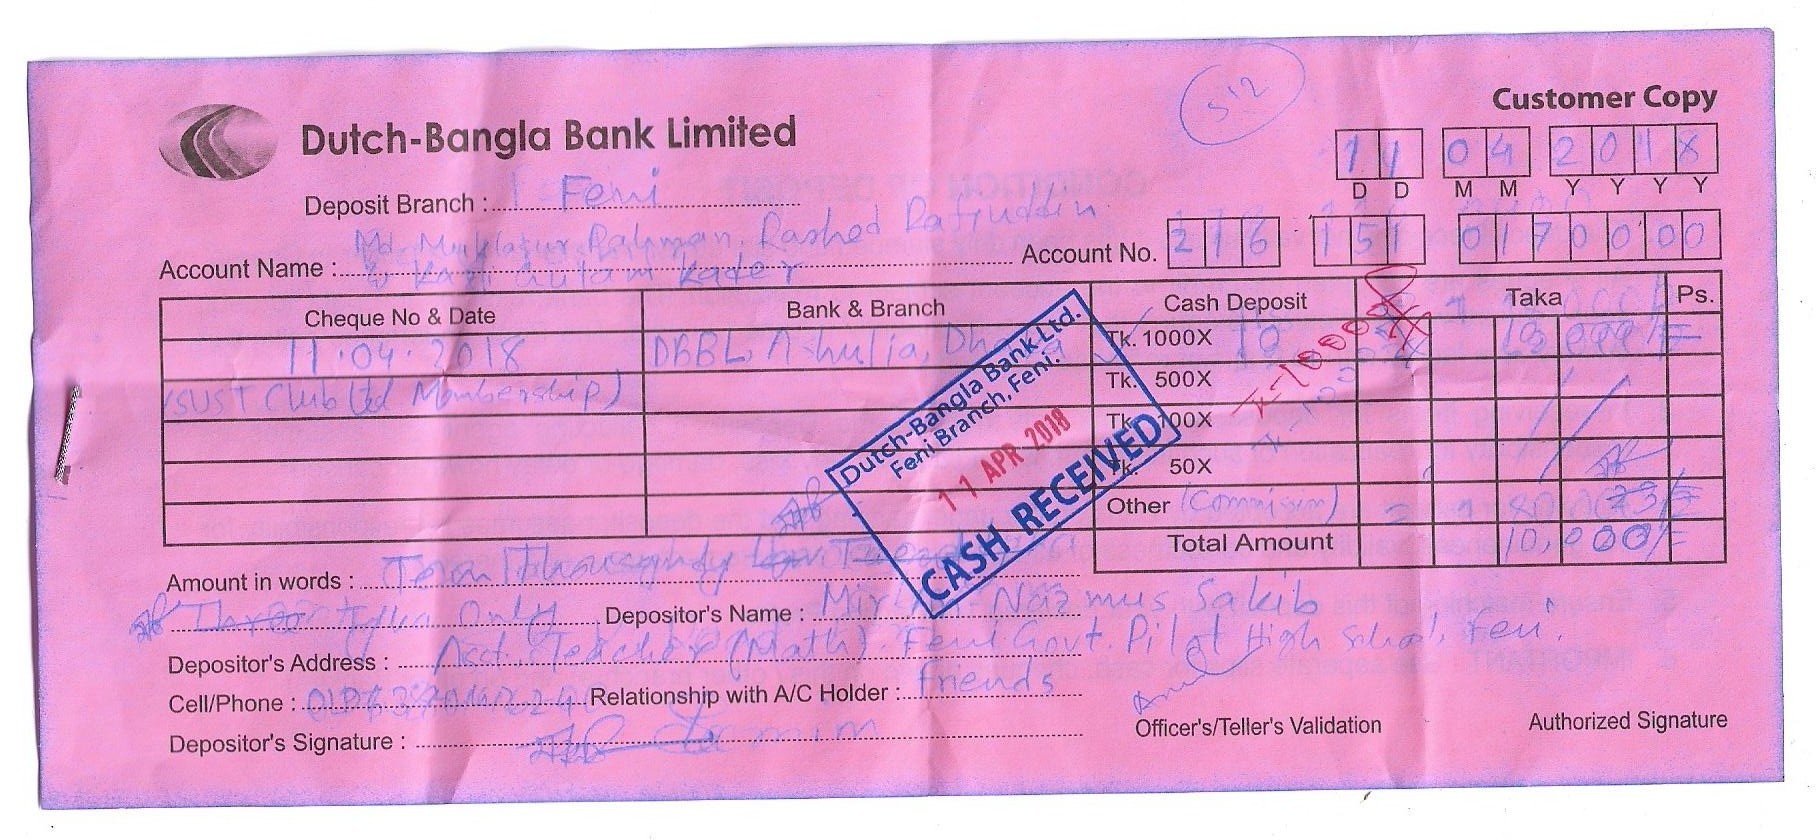 512
Customer Copy
Dutch-Bangla Bank Limited
11 04 2018
D D M M Y Y Y Y
Deposit Branch : Feni
Md. Rahman, Rashed Rafiuddin
Account Name : & Kazi Golam Kader
Account No. 216 151 0170000
Cheque No & Date Bank & Branch Cash Deposit Taka Ps.
11.04.2018 DBBL, Ashulia, Tk. 1000X 10 10,000/=
(SUST Club Ltd Membership) Tk. 500X
Tk. 100X
Tk. 50X
Other (Commission)
Total Amount 10,000/=
Dutch-Bangla Bank Ltd.
Feni Branch, Feni.
11 APR 2018
CASH RECEIVED
Amount in words :
Taka Only Depositor's Name : Nazmus Sakib
Depositor's Address : Asst. Teacher (Math). Feni Govt. Pilot High School, Feni.
Cell/Phone : Relationship with A/C Holder : friends
Depositor's Signature :
Officer's/Teller's Validation
Authorized Signature